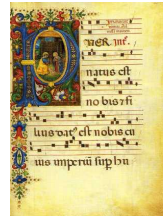 UER
natus est
no bis z fi
lius dat⁹ est nobis cu
ius imperiū sup hu